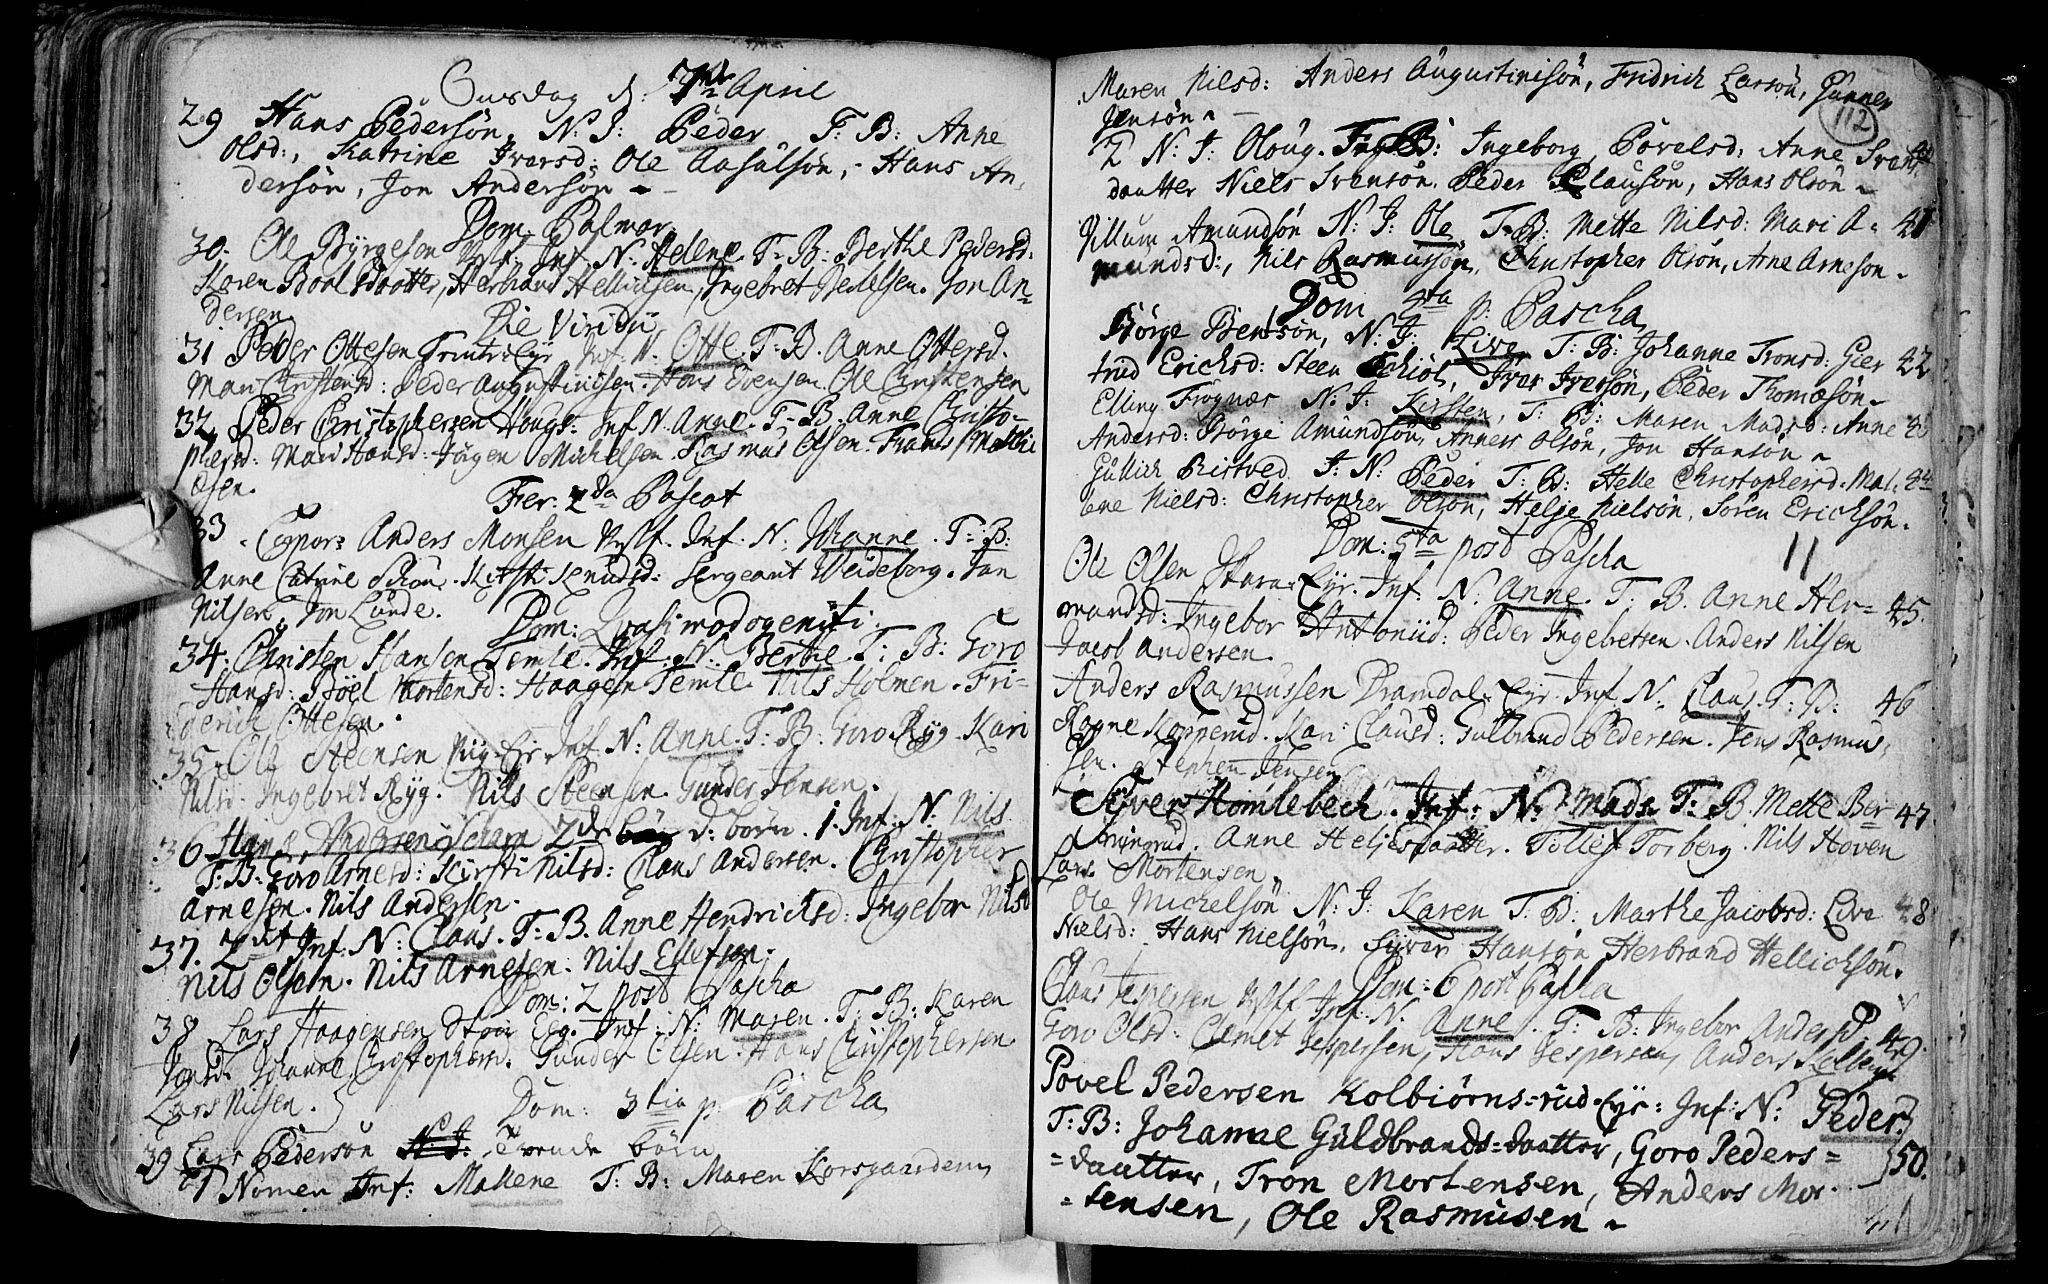 Onsdag d: 7de April
29 Hans Pedersön, N: I: Peder T: B: Anne
Olsd:, Katrine Iversd: Ole Aasulsön, Hans An-
dersön, Jon Andersön
Dom Palmar
30. Ole Byrgesen Inf. N: Helene T: B: Berthe Pedersd.
Karen Boelsdaatter, Herbrand Hellichsen, Ingebret Nilsen. Jon An-
dersen
Die Viridii
31 Peder Ottesen Eijr Inf: N. Otte T: B. Anne Ottersd.
Mari Christensd: Peder Augustinisen. Hans Evensen. Ole Christensen
32 Peder Christophersen Houg: Inf N. Anne. T: B. Anne Christo-
phersd: Mari Hansd: Jögen Michelsen. Rasmus Olsen. Frans Mathi
esen.
Fer: 2da Pascat
33. Corpor: Anders Monsen Inf. N. Wianne. T: B:
Anne Catrine Schou. Kirsti Knudsd: Sergeant Weideborg. Jan
Nilsen, Jon Lunde.
Dom: Qvasimodogeniti.
34. Christen Hansen Temte. Inf: N. Berthe. T: B: Goro
Hansd: Böel Mortensd: Haagen Temte. Nils Holmen. Fri-
derich Ottesen.
35. Ole Steensen Ryg. Eir Inf. N: Anne. T: B: Goro Ryg. Kari
Nilsd. Ingebret Ryg. Nils Steensen. Gunder Jensen.
36 Hans Andersen 2de d: börn. 1. Inf: N: Nils
T: B: Goro Arnesd: Kirsti Nilsd: Claus Andersen. Christopher
Arnesen. Nils Andersen.
37. 2det Inf: N: Claus. T: B. Anne Hendrichsd: Ingebor Nilsd
Nils Olsen. Nils Arnesen. Nils Ellefsen.
Dom: 2 post Pascha
38. Lars Haagensen Inf: N: Maren. T: B: Karen
Jonsd. Johanne Christophersd. Gunder Olsen. Hans Christophersen
Lars Nilsen.
Dom: 3tia p: Pascha
39 Lars Pedersön N: I: tvende börn
1 Nomen Inf: Mallene T: B: Maren Korsgaarden
Maren Nilsd: Anders Augustinisön, Fridrich Larsön, Gunner
Jensön
112
2 N: I: Oloug. T: B: Ingeborg Povelsd, Anne Svens 40
daatter Niels Svensön. Peder Clausön, Hans Olsön
Villum Amundsön N: I: Ole T: B: Mette Nilsd: Mari A- 41
mundsd:, Nils Rasmussön, Christopher Olsön, Arne Arneson
Dom 4ta p: Pascha
Börge Bentsön, N: I: Live T: B: Johanne Tronsd: Gier 42
trud Erichsd: Steen Schiöt, Iver Iversön, Peder Thomæsön
Elling Frognær N: I: Kirsten, T: B: Maren Madsd: Anne 43
Andersd: Börge Amundsön, Anners Olsön, Jon Hansön
Gullich Ristved I: N: Peder T: B: Helle Christophersd. Mal- 44
ene Nielsd: Christopher Olsön, Helje Nielsön, Sören Ericksön.
Dom: 5ta post Pascha 11
Ole Olsen Skara Eyr. Inf: N. Anne. T: B. Anne Her- 45.
mandsd: Ingebor Antoniid: Peder Ingebretsen. Anders Nilsen
Jacob Andersen.
Anders Rasmussen Dramdal. Eyr. Inf N. Claus. T: B: 46
Ragne Kopperud. Kari Clausd: Gulbrand Pedersen. Jens Rasmus
sen. Stephen Jensen
Siver Homlebech. Inf: N: Mads T: B. Mette Ber- 47
Anne Heljesdaatter. Tollef Torberg. Nils Hoven
Lars Mortensen.
Ole Michelsön N: I: Karen T: B: Marthe Jacobsd: Live 48
Nielsd: Hans Nielsön, Siver Hansön Herbrand Hellichsön.
Dom: 6 post Pascha
Claus Jespersen Inf. N. Anne. T: B: Ingebor Andersd. 49.
Goro Olsd: Clemet Jespersen, Hans Jespersen, Anders
Povel Pedersen Kolbiörns-rud Eyr: Inf: N: Peder
T: B: Johanne Guldbrands-daatter, Goro Peders=
=daatter, Tron Mortensen, Anders Mor- 50.
=tensen, Ole Rasmusen